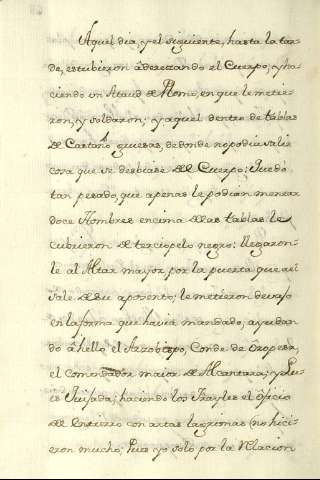 Aquel dia, y el siguiente, hasta la tar-
de, estubieron âderezando el Cuerpo, y ha-
ciendo un Ataud de Plomo, en que le metie-
ron, y soldaron; y aquel dentro de tablas
de Castaño gruesas, de donde no podia salir
cosa que se desviase del Cuerpo; Quedó
tan pesado, que apenas le podian menear
doce Hombres encima de las tablas le
cubrieron de terciopelo negro: llegaron-
le al Altar mayor por la puerta que assi
sale de su aposento; le metieron devajo
en la forma que havia mandado, ayudan
do âhello el Arzobispo, Conde de Oropesa,
el Comendador maior de Alcantara; y Lu-
is Quijada; haciendo los Frayles el Oficio
de Entierro con artas lagrimas (no hici-
eron mucho, Pues yo solo por la Relacion